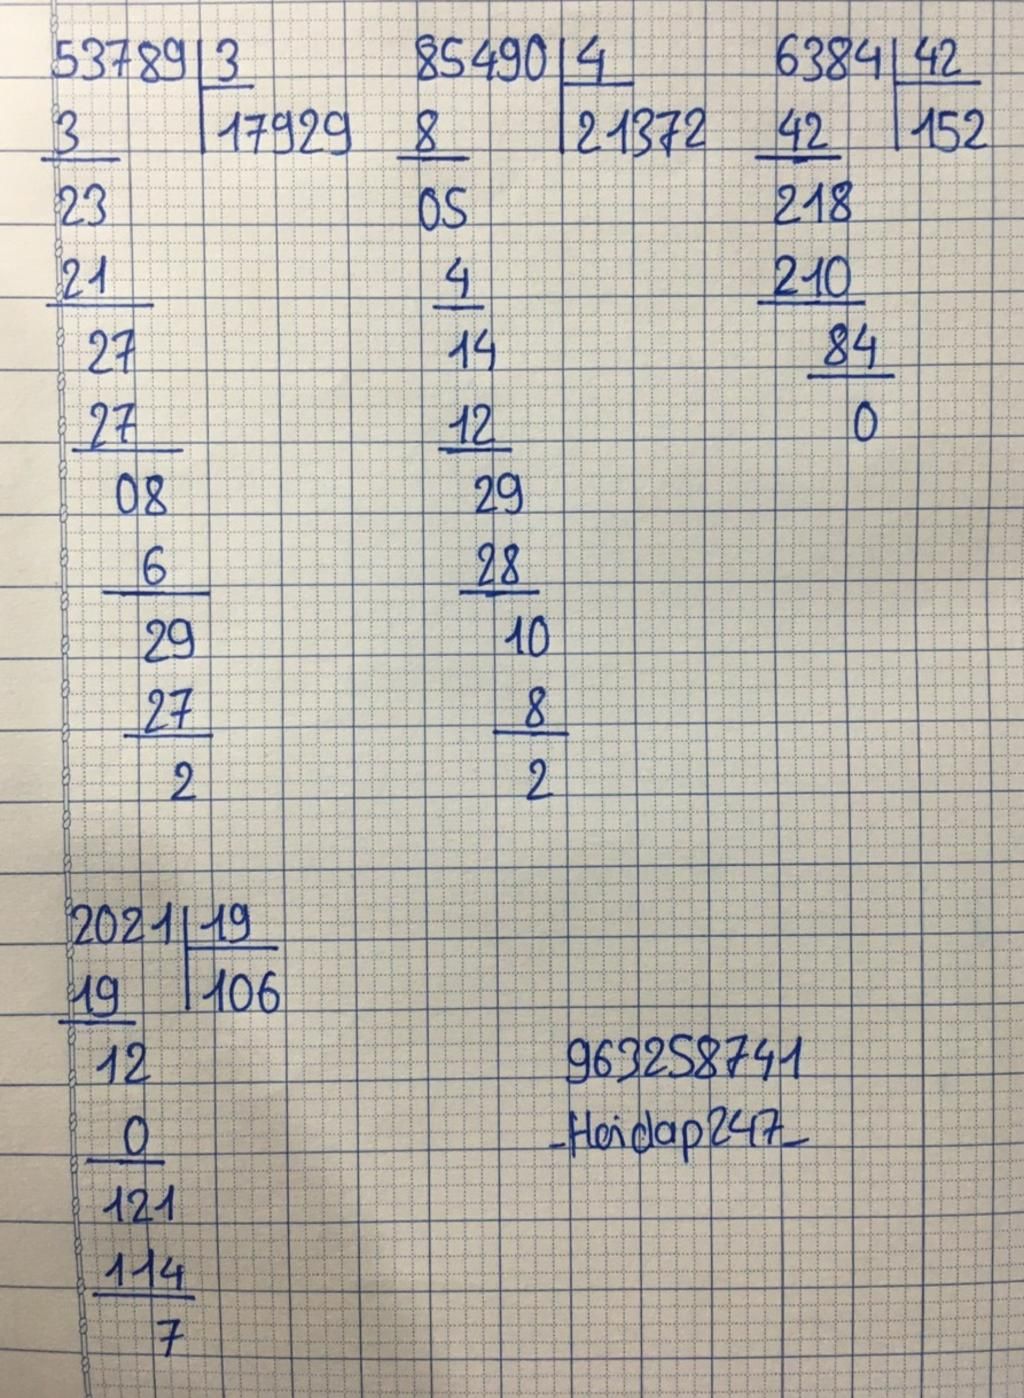 53789 3
3 17929
23
21
27
27
08
6
29
27
2
85490 4
8 21372
05
4
14
12
29
28
10
8
2
6384 42
42 152
218
210
84
0
2021 19
19 106
12
0
121
114
7
963258741
_Hoidap247_